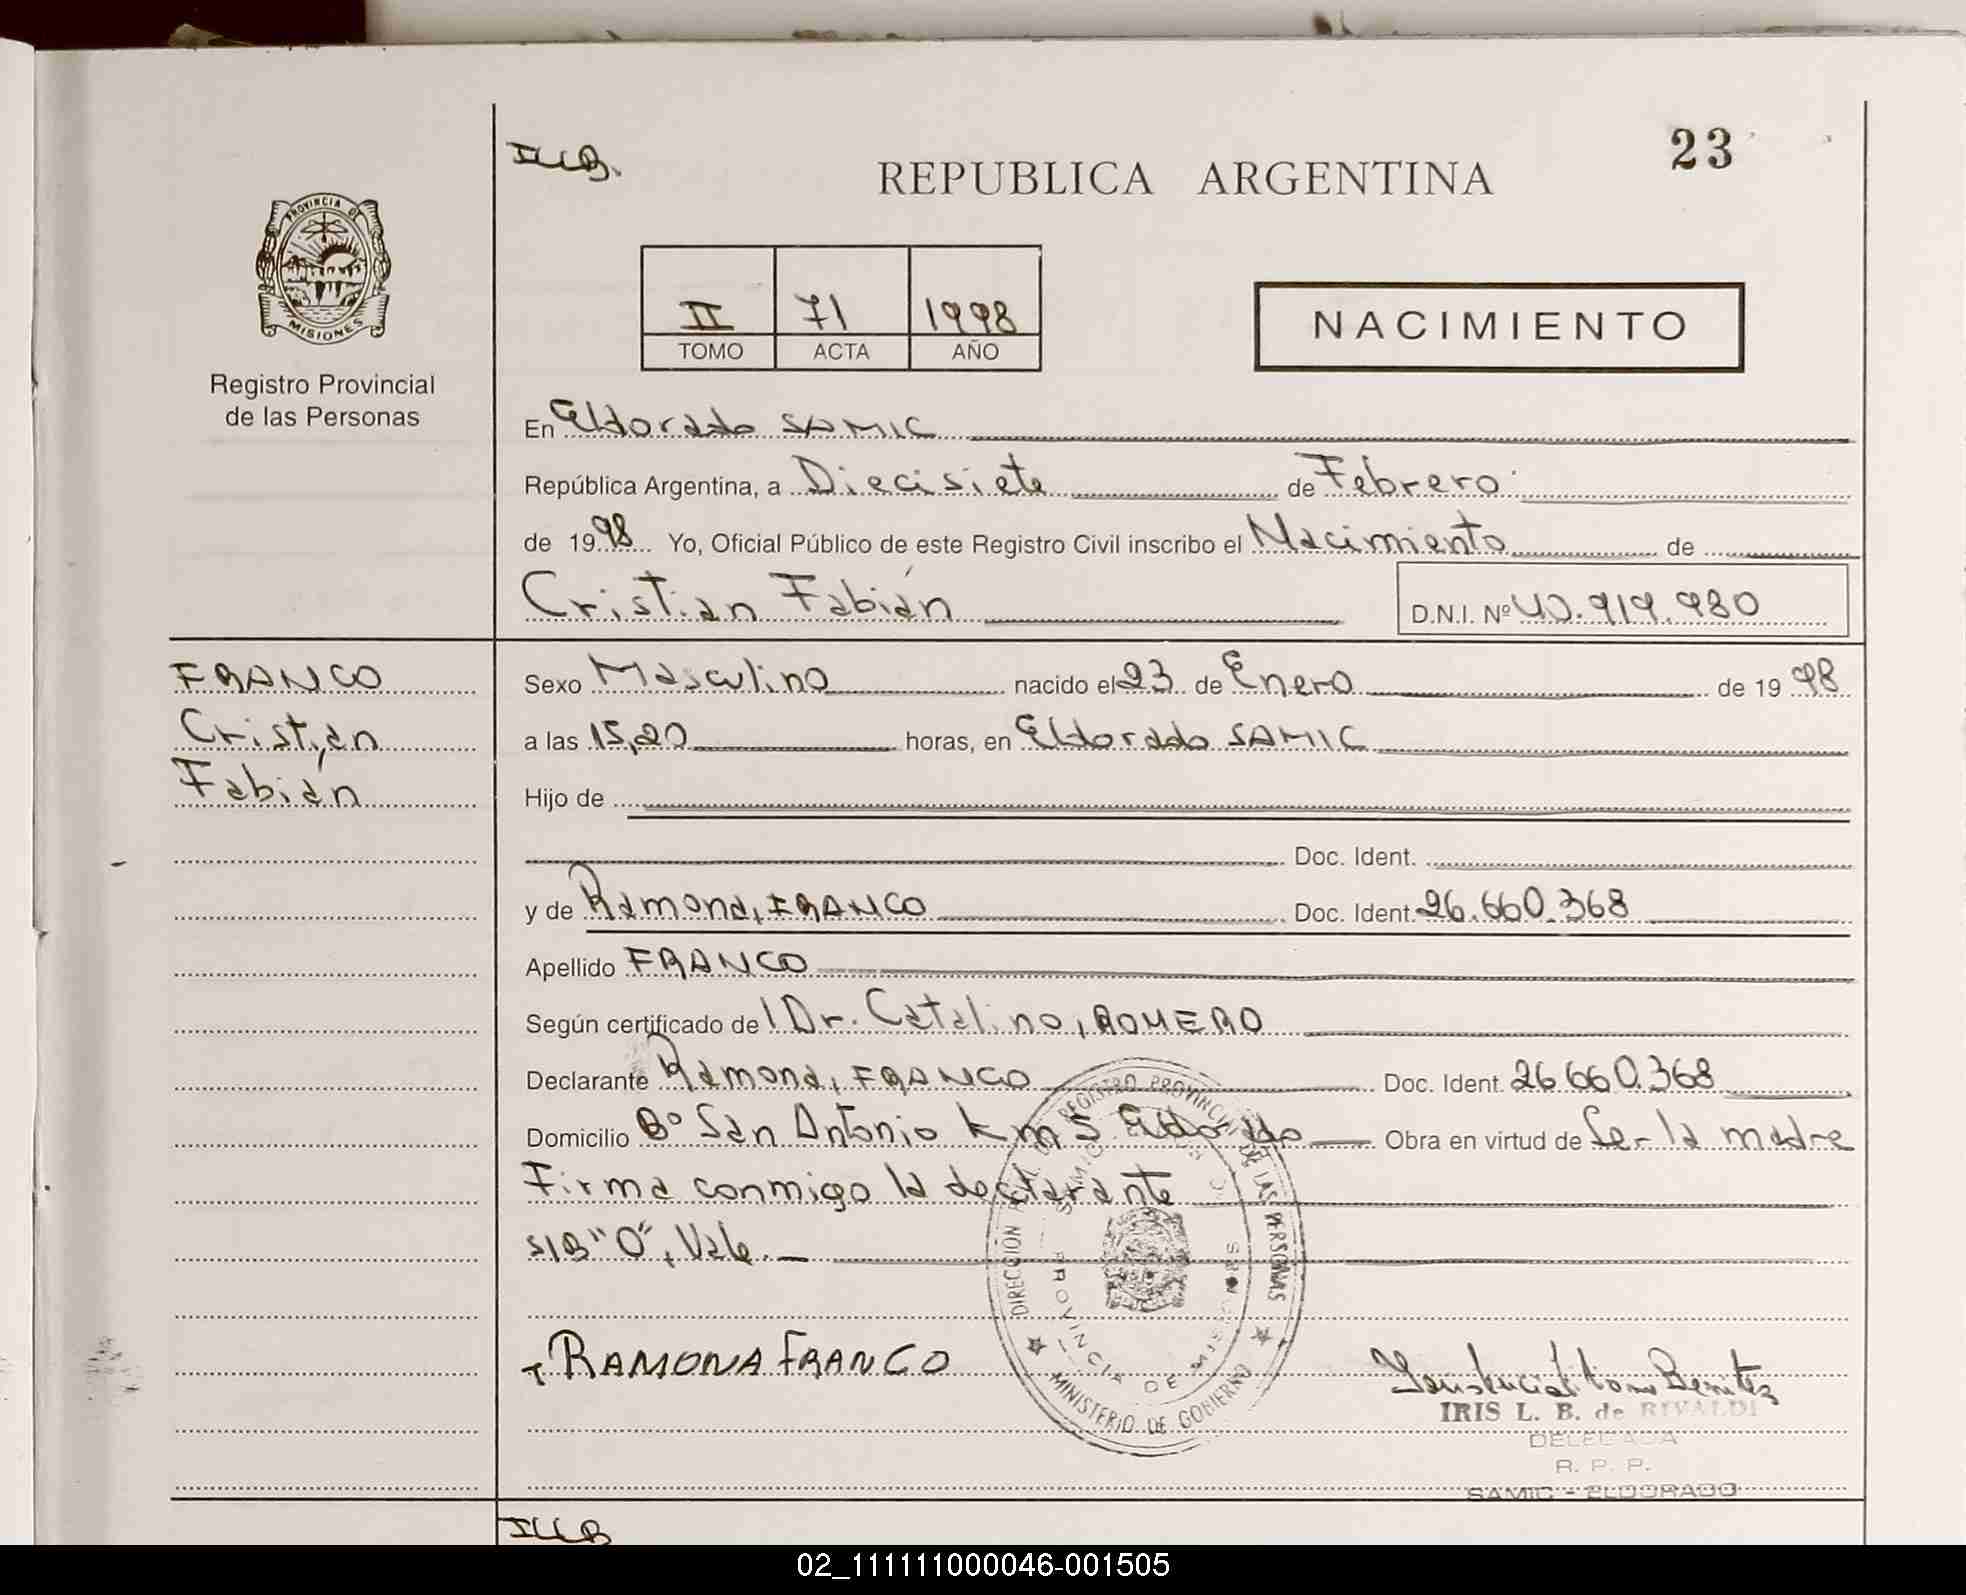 23
ILLB.
REPUBLICA ARGENTINA
PROVINCIA DE
MISIONES
Registro Provincial
de las Personas
II 71 1998
TOMO ACTA AÑO
NACIMIENTO
En Eldorado SAMIC
República Argentina, a Diecisiete de Febrero
de 1998 Yo, Oficial Público de este Registro Civil inscribo el Nacimiento de
Cristian Fabián D.N.I. Nº 40.919.980
FRANCO
Cristian
Fabián
Sexo Masculino nacido el 23 de Enero de 1998
a las 15,20 horas, en Eldorado SAMIC
Hijo de
Doc. Ident.
y de Ramona, FRANCO Doc. Ident. 26.660.368
Apellido FRANCO
Según certificado del Dr. Catalino, ROMERO
Declarante Ramona, FRANCO Doc. Ident. 26660.368
Domicilio Bº San Antonio km 5 Eldorado Obra en virtud de Ser la madre
Firma conmigo la declarante
S/B "O", Vale.
RAMONA FRANCO
DIRECCION REGISTRO PROVINCIAL DE LAS PERSONAS
PROVINCIA DE MISIONES
MINISTERIO DE GOBIERNO
Benitez
IRIS L. B. de RIVALDI
DELEGADA
R. P. P.
SAMIC - ELDORADO
ILLB
02_111111000046-001505